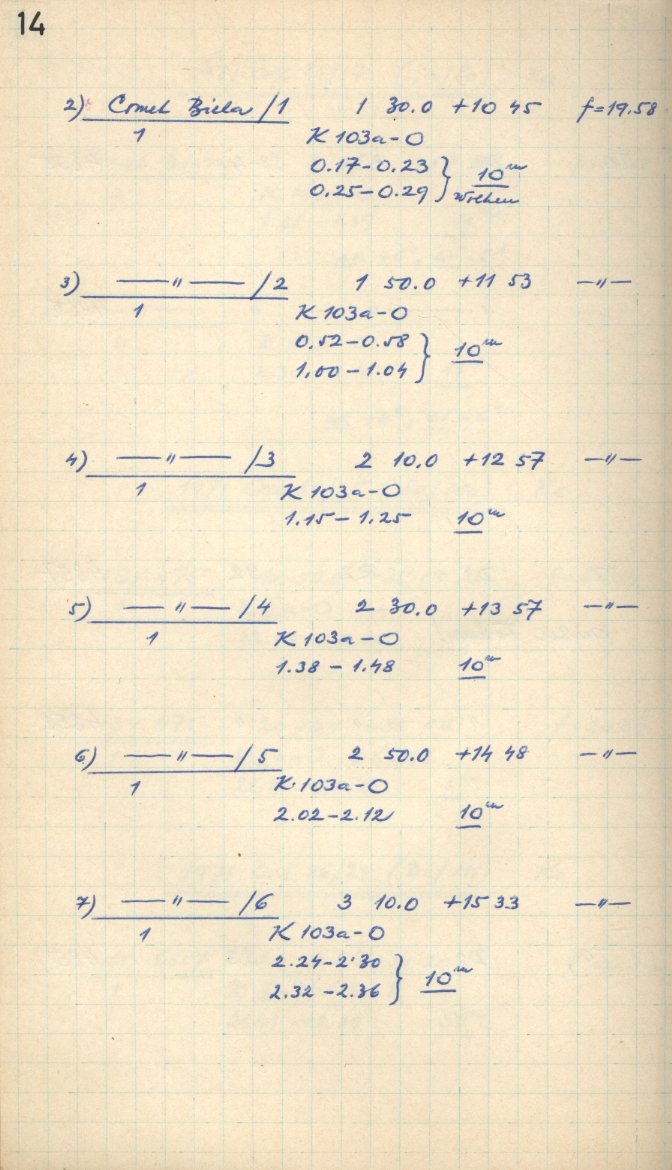 14
2) Comet Biela /1 1 30.0 +10 45 f=19.58
1 K 103a-O
0.17-0.23 } 10ᵐ
0.25-0.29 Wolken
3) —〃— /2 1 50.0 +11 53 —〃—
1 K 103a-O
0.52-0.58 } 10ᵐ
1.00-1.04
4) —〃— /3 2 10.0 +12 57 —〃—
1 K 103a-O
1.15-1.25 10ᵐ
5) —〃— /4 2 30.0 +13 57 —〃—
1 K 103a-O
1.38-1.48 10ᵐ
6) —〃— /5 2 50.0 +14 48 —〃—
1 K 103a-O
2.02-2.12 10ᵐ
7) —〃— /6 3 10.0 +15 33 —〃—
1 K 103a-O
2.24-2.30 } 10ᵐ
2.32-2.36